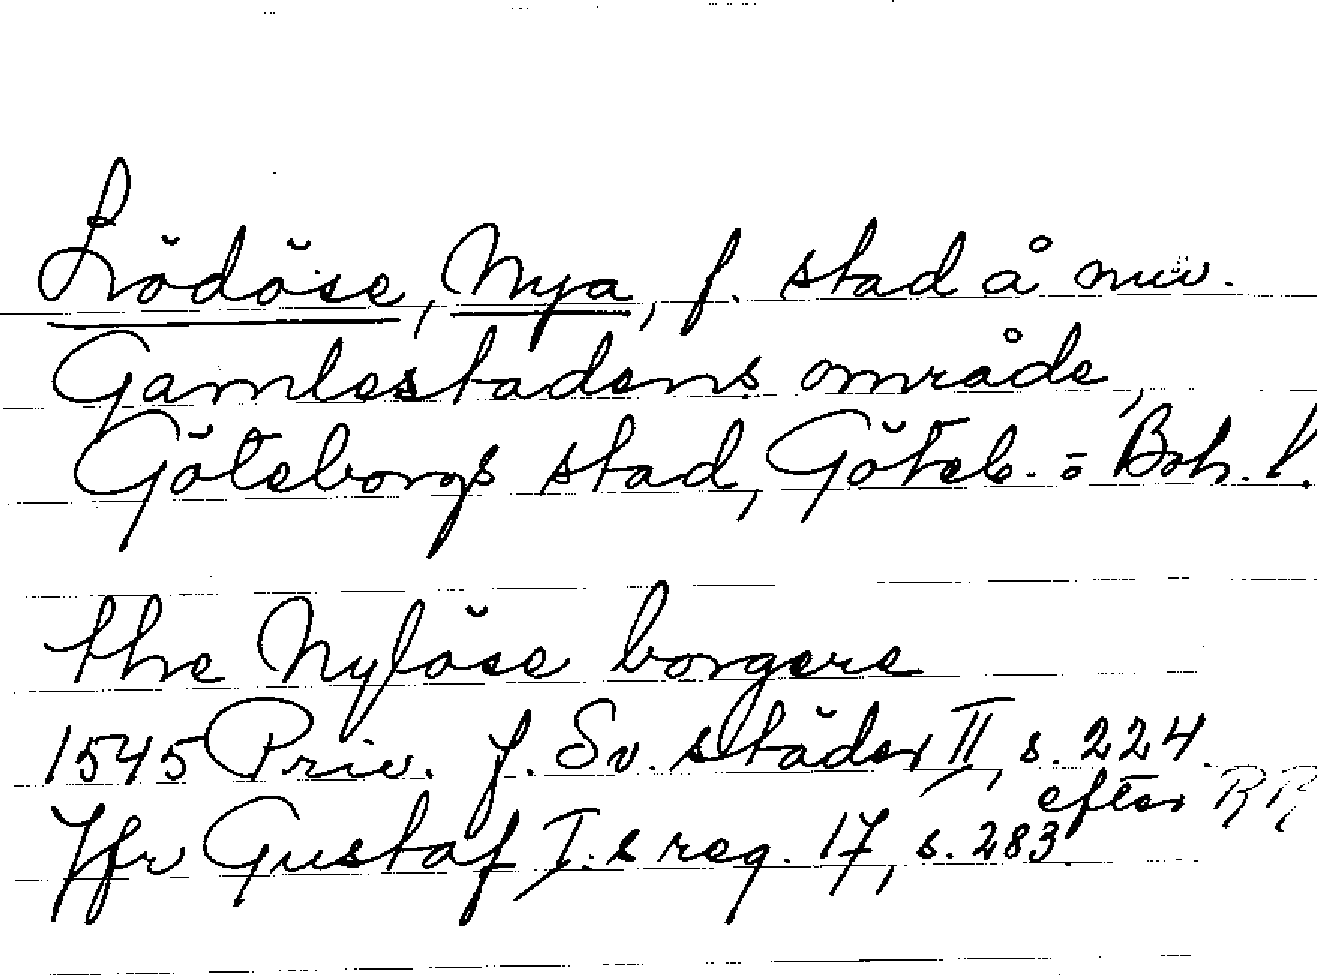 Lödöse, Nya, f. stad å nuv.
Gamlestadens område,
Göteborgs stad, Göteb. o Boh. l.
the Nyløse borgere
1545 Priv. f. Sv. städer II, s. 224.
efter RR
Jfr Gustaf I:s reg. 17, s. 283.